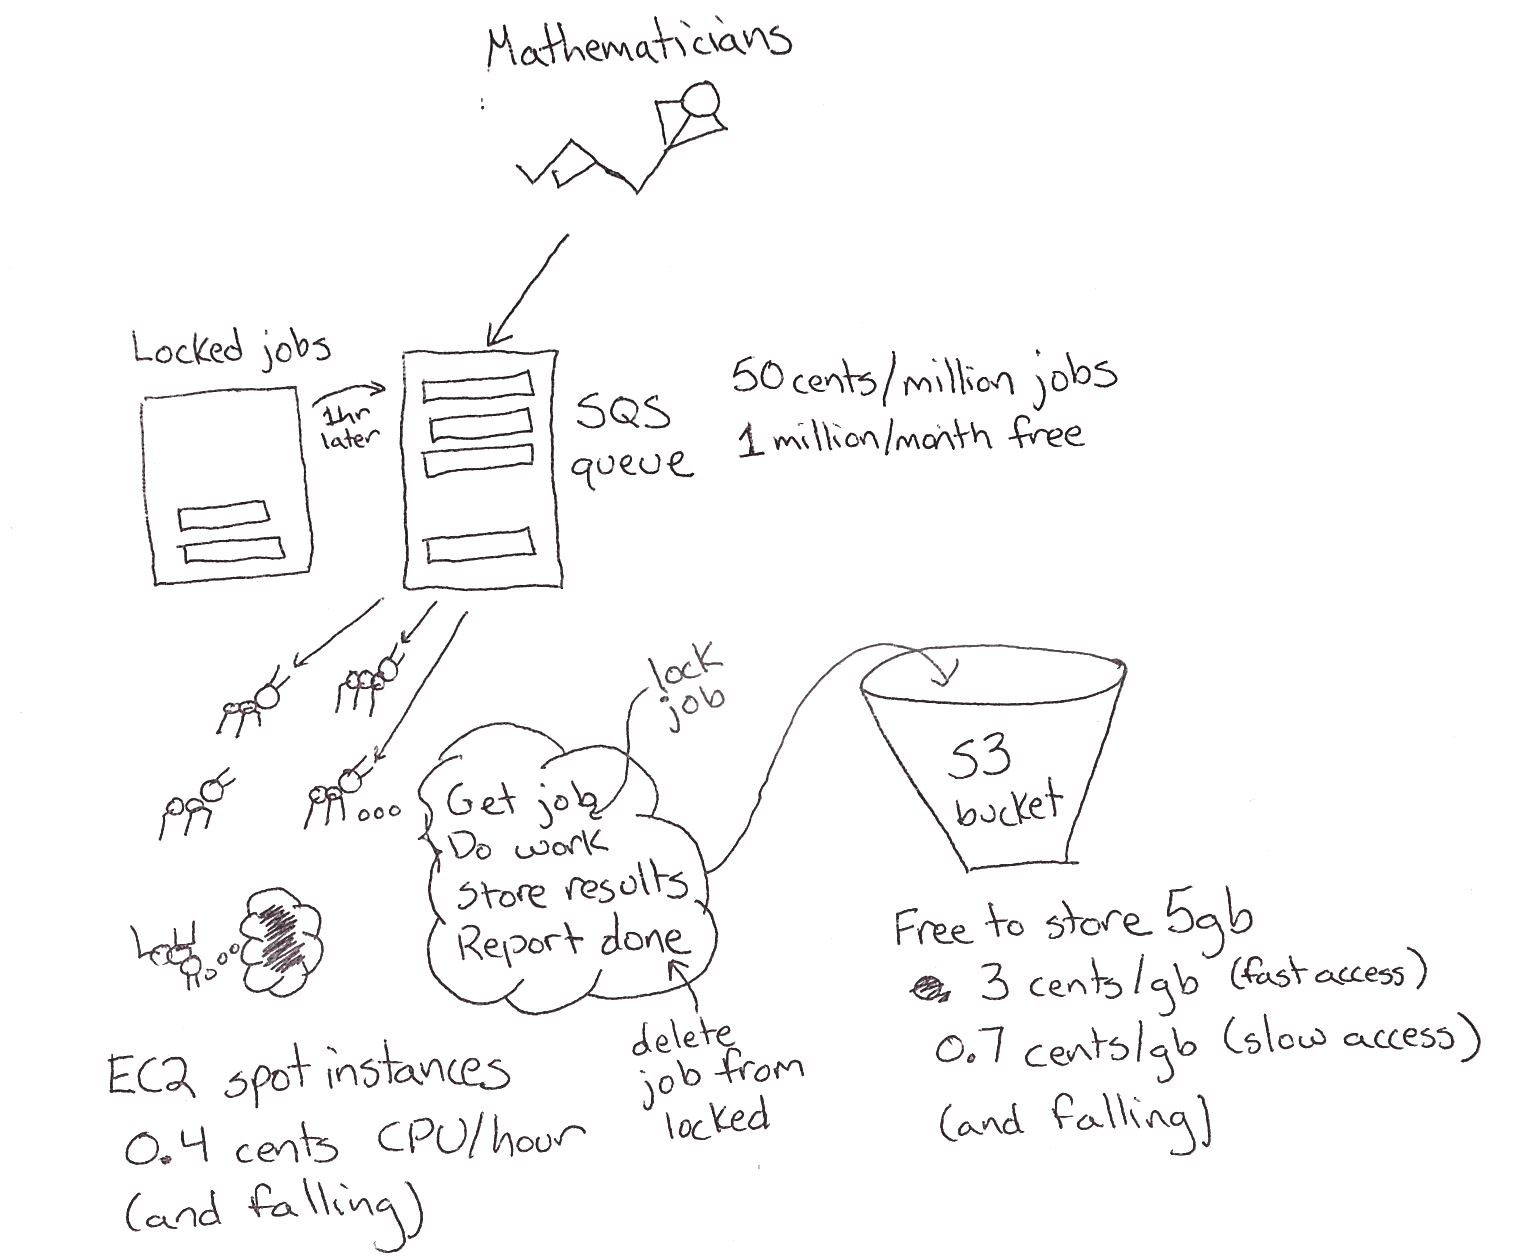 Mathematicians
Locked jobs
1hr
later
SQS
queue
50 cents/million jobs
1 million/month free
lock
job
Get job
Do work
Store results
Report done
S3
bucket
Free to store 5gb
3 cents/gb (fast access)
0.7 cents/gb (slow access)
(and falling)
delete
job from
locked
EC2 spot instances
0.4 cents CPU/hour
(and falling)